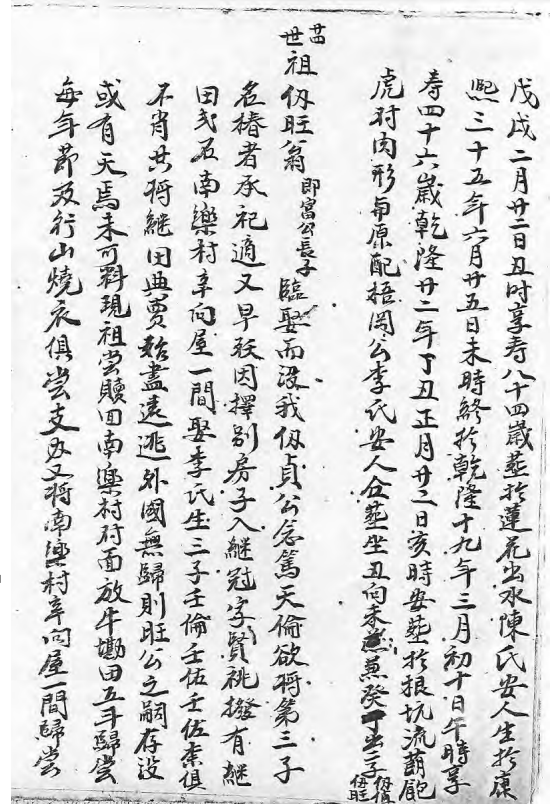 戊戌二月廿二日丑时享寿八十四歲葬於蓮花出水陳氏安人生於康
熙三十五年六月廿五日未時終於乾隆十九年三月初十日午時享
寿四十六歲乾隆廿二年丁丑正月廿二日亥時安葬於根坑流萠飽
虎孖肉形与原配梧岡公李氏安人仝葬坐丑向未兼癸丁出二子
廿四世祖伋旺翁即富公長子臨娶而没我伋貞公念篤天倫欲將第三子
名椿者承祀適又早殀因擇别房子入継冠字賢祧撥有継
田弍石南樂村辛向屋一間娶李氏生三子壬倫壬伍壬佐柰俱
不肖共将継田典賣殆盡遠逃外國無歸則旺公之嗣存没
或有天焉未可料現祖尝贖回南樂村孖面放牛墈田五斗歸尝
每年節及行山燒衣俱尝支办又将南樂村辛向屋一間歸尝